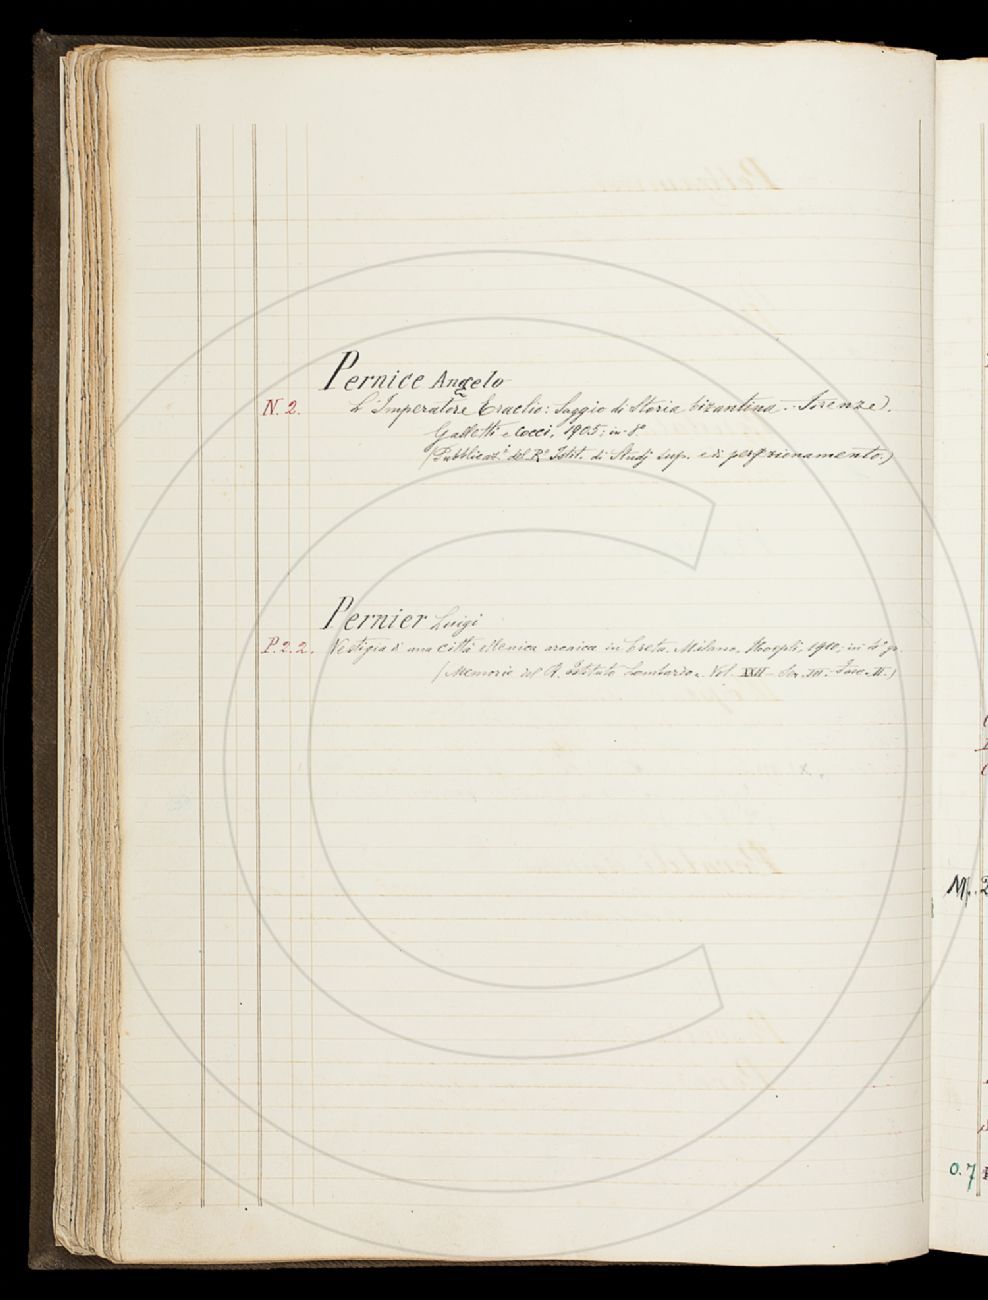 Pernice Angelo
N. 2. L'Imperatore Eraclio: Saggio di Storia bizantina. - Firenze,
Galletti e Cocci, 1905; in-8º
(Pubblicaz.i del R.º Istit. di Studj sup. e di perfezionamento.)
Pernier Luigi
P.2.2. Vestigia di una città ellenica arcaica in Creta. Milano, Hoepli, 1910; in 4º gr.
(Memorie del R. Istituto Lombardo. Vol. XXII - Ser. III. Fasc. II.)
M. 2
0.7